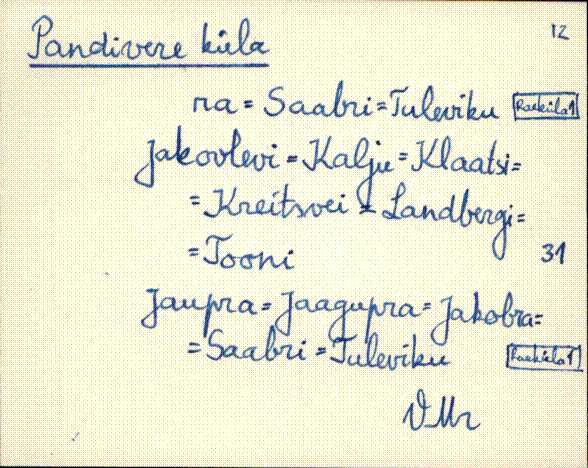 12
Pandivere küla
ra = Saabri = Tuleviku Raeküla 1
Jakovlevi = Kalju = Klaatsi =
= Kreitsvei = Landbergi =
= Tooni 31
Jaupra = Jaagupra = Jakobra =
= Saabri = Tuleviku Raeküla 1
VMr